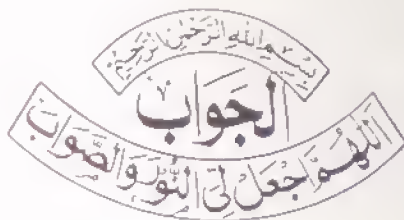 بِسْمِ اللهِ الرَّحْمٰنِ الرَّحِيْمِ
اَلْجَوَابْ
اَللّٰهُمَّ اجْعَلْ لِیَ النُّوْرَ وَالصَّوَابْ